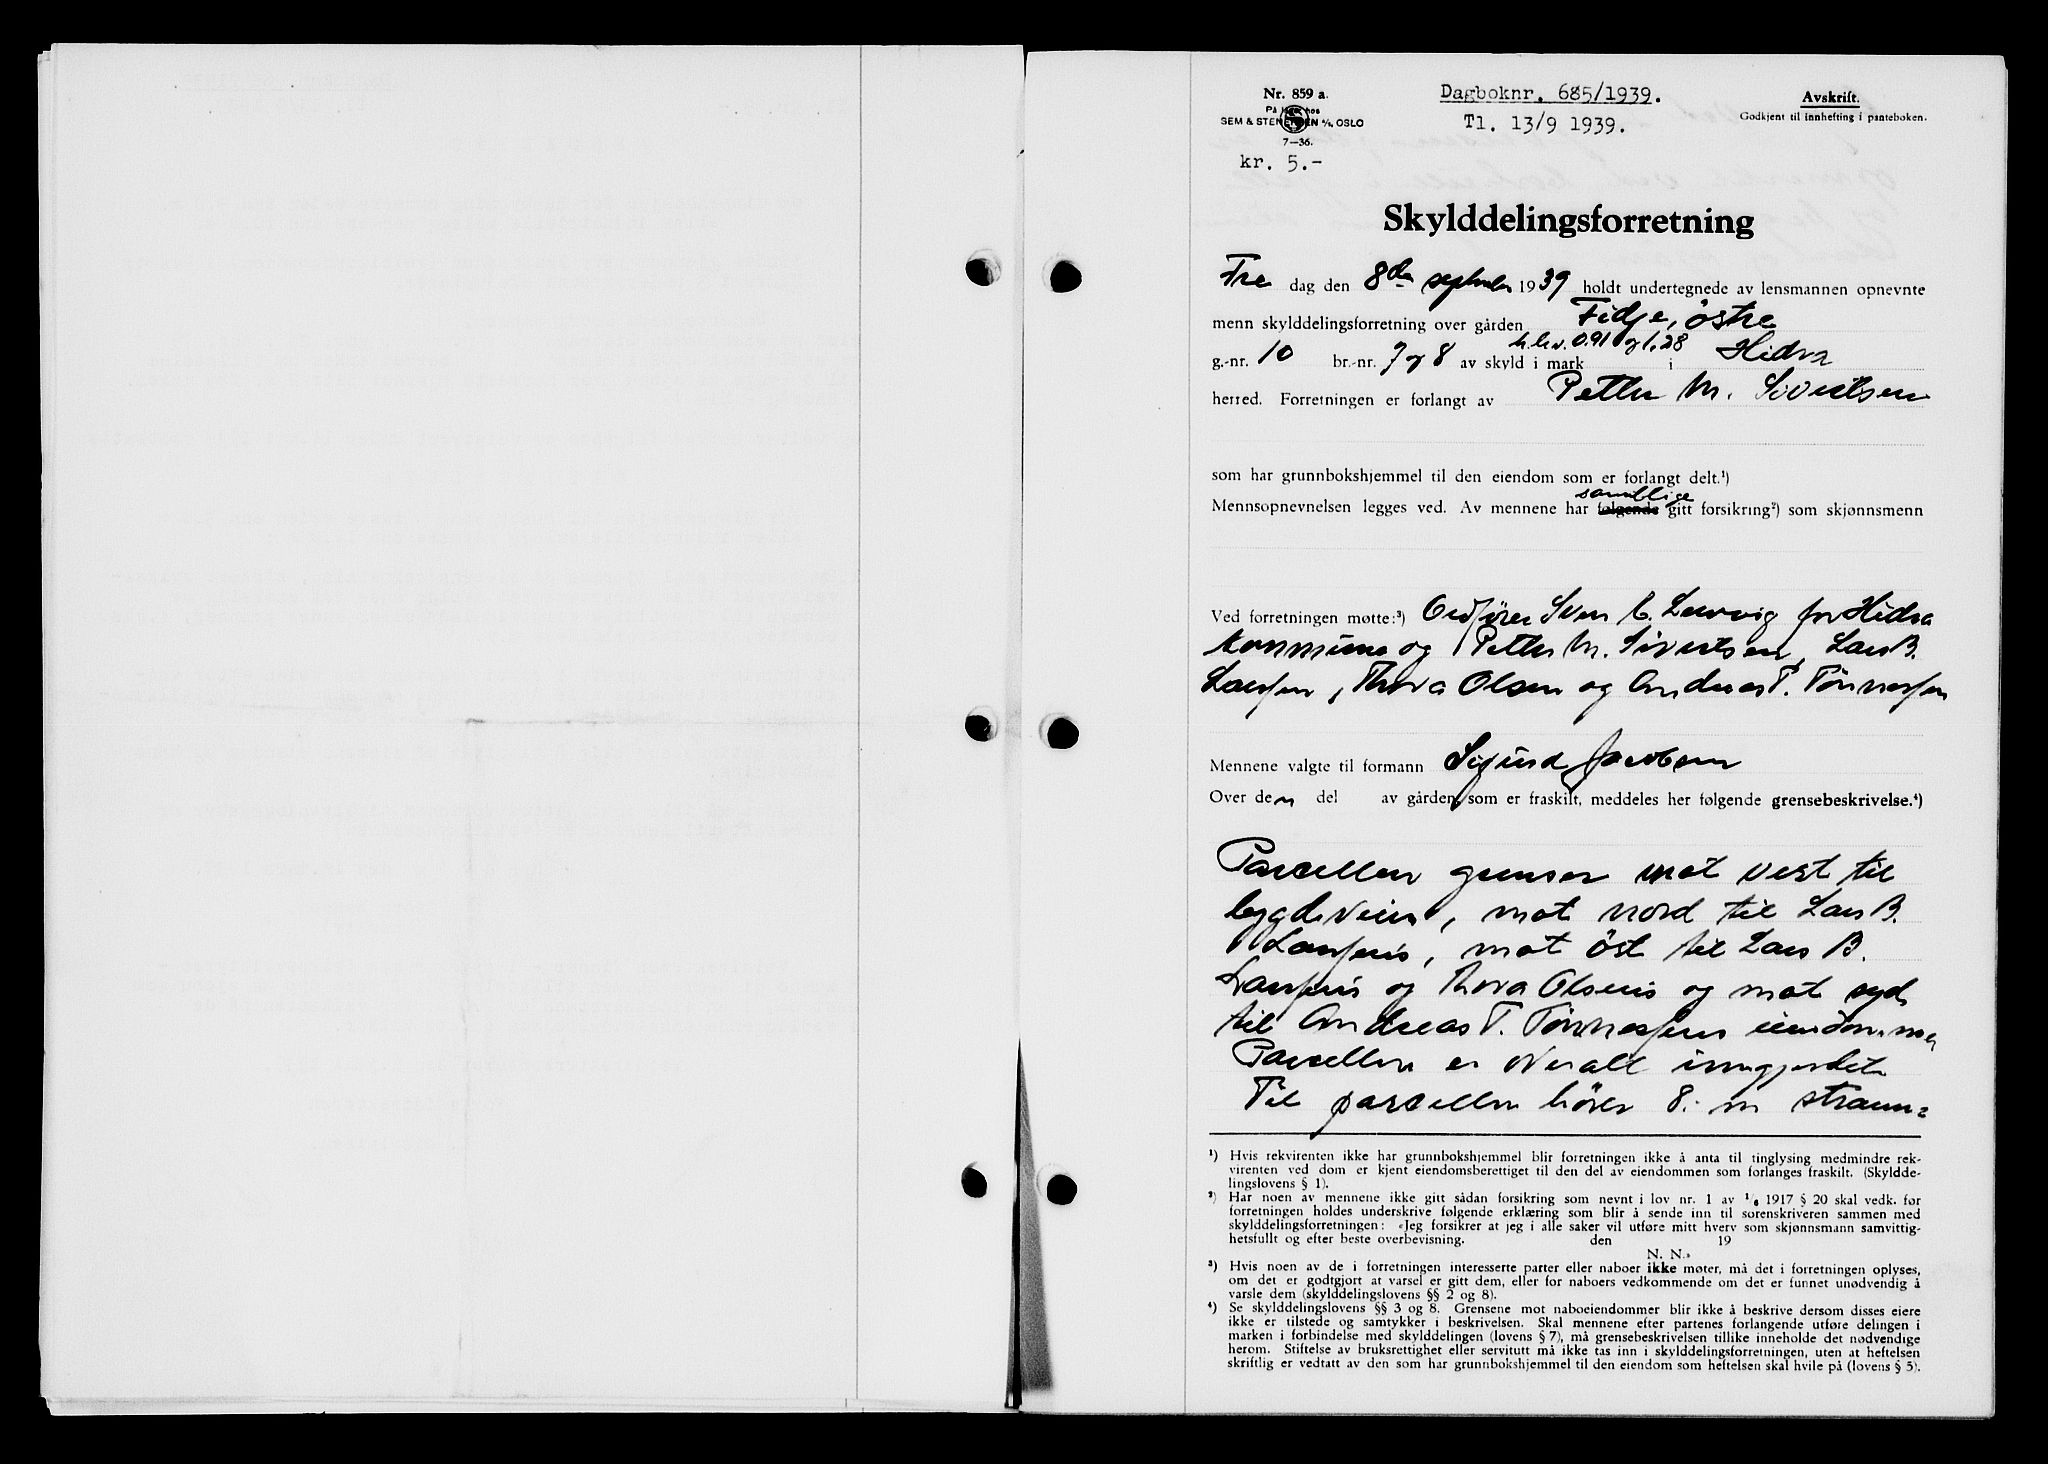 Nr. 859 a.
På lager hos
SEM & STENERSEN A/S, OSLO
7—36.
kr. 5.-
Dagboknr. 685/1939.
Tl. 13/9 1939.
Avskrift.
Godkjent til innhefting i panteboken.
Skylddelingsforretning
Fre dag den 8de september 1939 holdt undertegnede av lensmannen opnevnte
menn skylddelingsforretning over gården Fidje, östre
g.-nr. 10 br.-nr. 7 og 8 av skyld i mark h.h.v. 0.91 og 1,28 i Hidra
herred. Forretningen er forlangt av Petter M. Sivertsen
som har grunnbokshjemmel til den eiendom som er forlangt delt.¹)
Mennsopnevnelsen legges ved. Av mennene har følgende samtlige gitt forsikring²) som skjønnsmenn
Ved forretningen møtte:³) Ordfører Sven C. Lervvig for Hidra
kommune og Petter M. Sivertsen, Lars B.
Larsen, Thora Olsen og Andreas T. Tönnessen
Mennene valgte til formann Sigurd Jacobsen
Over den del av gården, som er fraskilt, meddeles her følgende grensebeskrivelse.⁴)
Parcellen grenser mot vest til
bygdeveien, mot nord til Lars B.
Larsens, mot öst til Lars B.
Larsens og Thora Olsens og mot syd
til Andreas T. Tönnessens eiendommer
Parcellen er overalt inngjerdet.
Til parcellen hörer 8. m straum=
¹) Hvis rekvirenten ikke har grunnbokshjemmel blir forretningen ikke å anta til tinglysing medmindre rek-
virenten ved dom er kjent eiendomsberettiget til den del av eiendommen som forlanges fraskilt. (Skyldde-
lingslovens § 1).
²) Har noen av mennene ikke gitt sådan forsikring som nevnt i lov nr. 1 av 1/6 1917 § 20 skal vedk. før
forretningen holdes underskrive følgende erklæring som blir å sende inn til sorenskriveren sammen med
skylddelingsforretningen: «Jeg forsikrer at jeg i alle saker vil utføre mitt hverv som skjønnsmann samvittig-
hetsfullt og efter beste overbevisning. den 19
N. N.»
³) Hvis noen av de i forretningen interesserte parter eller naboer ikke møter, må det i forretningen oplyses,
om det er godtgjort at varsel er gitt dem, eller for naboers vedkommende om det er funnet unødvendig å
varsle dem (skylddelingslovens §§ 2 og 8).
⁴) Se skylddelingslovens §§ 3 og 8. Grensene mot naboeiendommer blir ikke å beskrive dersom disses eiere
ikke er tilstede og samtykker i beskrivelsen. Skal mennene efter partenes forlangende utføre delingen i
marken i forbindelse med skylddelingen (lovens § 7), må grensebeskrivelsen tillike inneholde det nødvendige
herom. Stiftelse av bruksrettighet eller servitutt må ikke tas inn i skylddelingsforretningen, uten at heftelsen
skriftlig er vedtatt av den som har grunnbokshjemmel til den eiendom som heftelsen skal hvile på (lovens § 5).